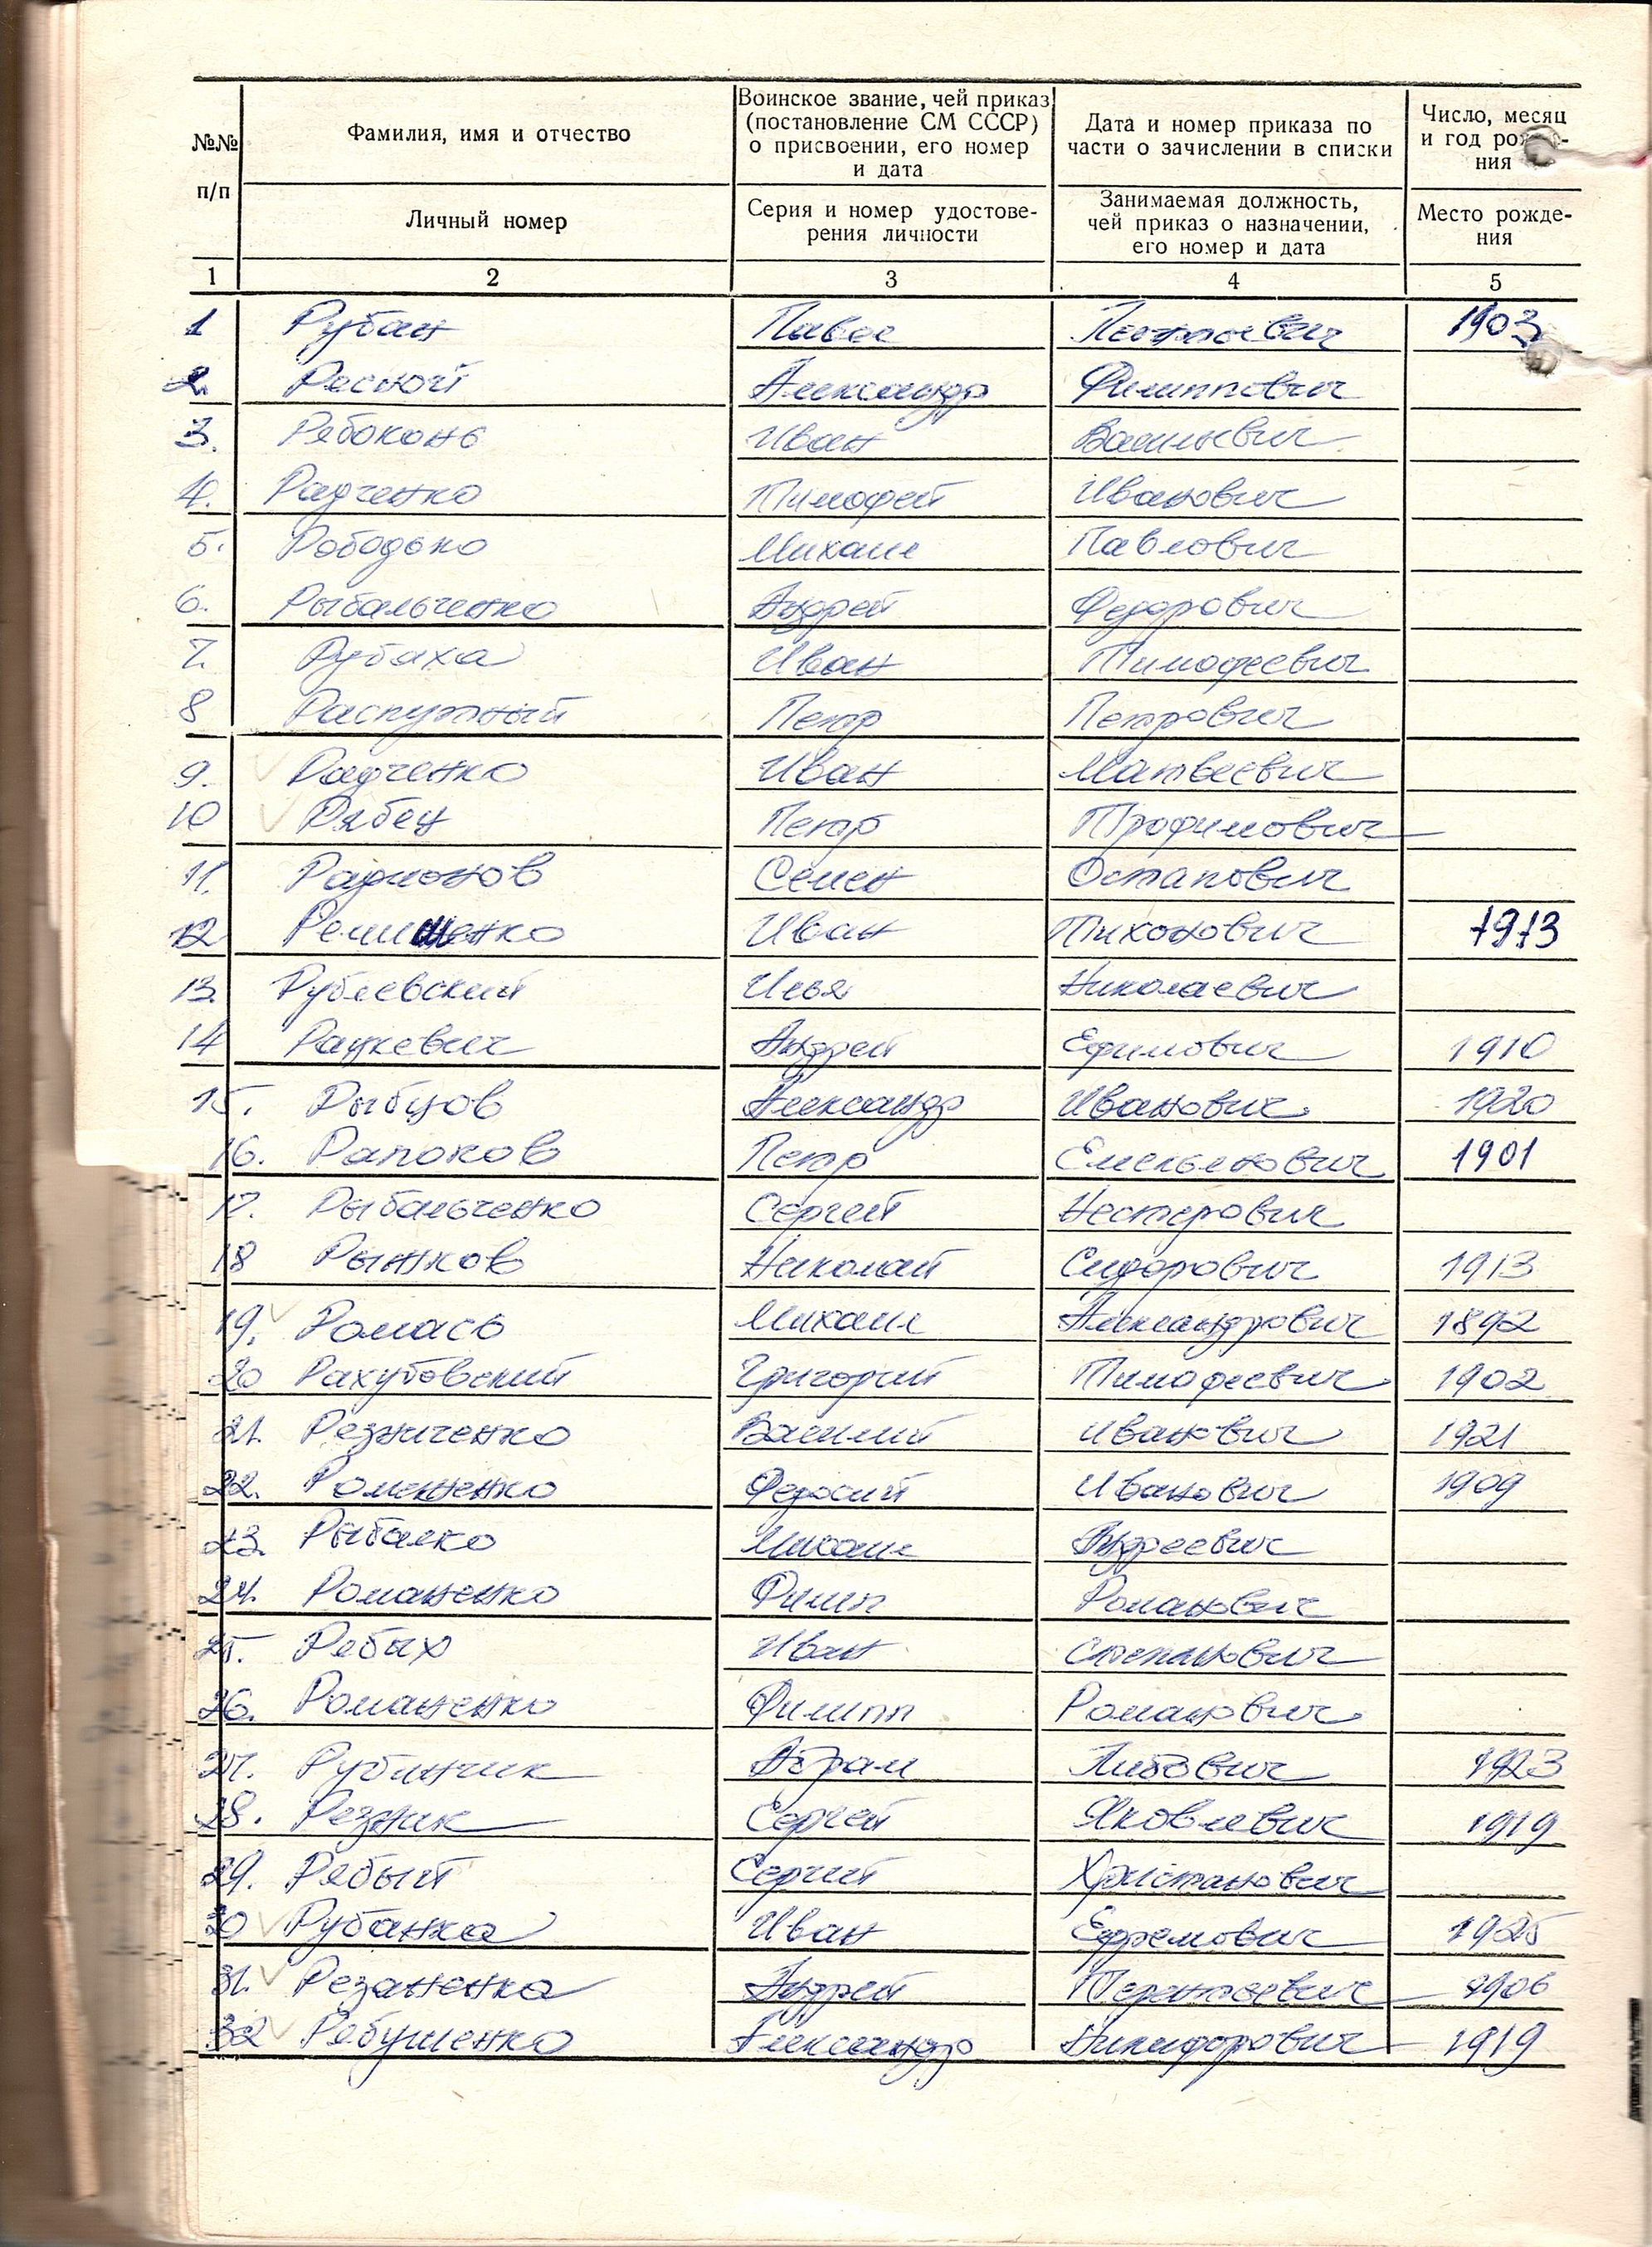 №№ п/п
Фамилия, имя и отчество
Личный номер
Воинское звание, чей приказ
(постановление СМ СССР)
о присвоении, его номер
и дата
Серия и номер удостове-
рения личности
Дата и номер приказа по
части о зачислении в списки
Занимаемая должность,
чей приказ о назначении,
его номер и дата
Число, месяц
и год
ния
Место рожде-
ния
1 2 3 4 5
1 Рубан Павел 1903
2. Александр Филиппович
3. Рябоконь Иван Васильевич
4. Радченко Тимофей Иванович
5. Рободько Михаил Павлович
6. Рыбальченко Андрей Федорович
7. Рубаха Иван Тимофеевич
8 Распутный Петр Петрович
9. Радченко Иван Матвеевич
10 Рябец Петр Трофимович
11. Радионов Семен Остапович
12 Иван Тихонович 1913
13. Рублевский Илья Николаевич
14 Рацкевич Андрей Ефимович 1910
15. Рыбцов Александр Иванович 1920
16. Рапоков Петр Емельянович 1901
17. Рыбальченко Сергей Нестерович
18 Рынков Николай Сидорович 1913
19. Ромась Михаил Александрович 1892
20 Рахубовский Григорий Тимофеевич 1902
21. Резниченко Василий Иванович 1921
22. Федосий Иванович 1909
23. Рыбалко Михаил Андреевич
24. Романенко Филип Романович
25. Ребых Иван Степанович
26. Романенко Филипп Романович
27. Рубинчик Абрам 1923
28. Резник Сергей Яковлевич 1919
29. Рябый Сергий Христанович
30 Рубанка Иван Ефремович 1925
31. Резаненко Андрей Терентьевич 1906
32 Рябушенко Александр Никифорович 1919